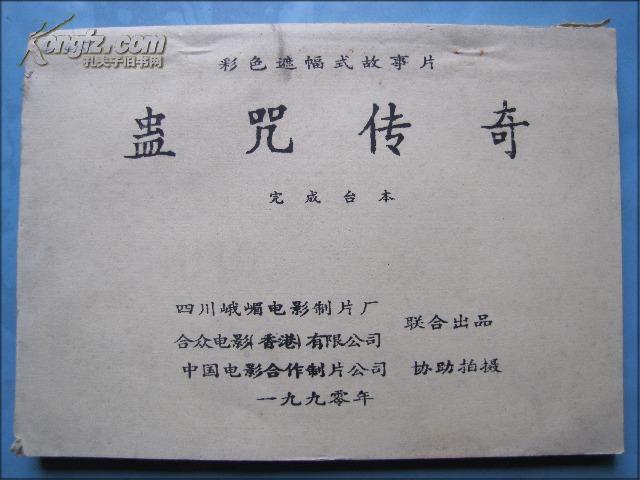 Kongfz.com
孔夫子旧书网
彩色遮幅式故事片
蛊咒传奇
完成台本
四川峨嵋电影制片厂
合众电影(香港)有限公司
联合出品
中国电影合作制片公司 协助拍摄
一九九零年